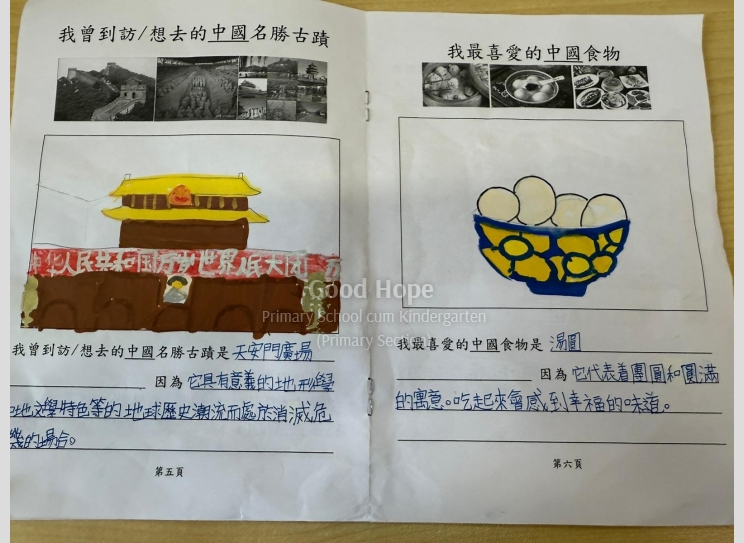 我曾到訪/想去的中國名勝古蹟
华人民共和国万岁世界人民大团
我曾到訪/想去的中國名勝古蹟是 天安門廣場
因為 它具有意義的地形
地文學特色等的地球歷史潮流而處於消滅危
機的場合。
第五頁
我最喜愛的中國食物
我最喜愛的中國食物是 湯圓
因為 它代表着團圓和圓滿
的寓意。吃起來會感到幸福的味道。
第六頁
Good Hope
Primary School cum Kindergarten
(Primary Sec